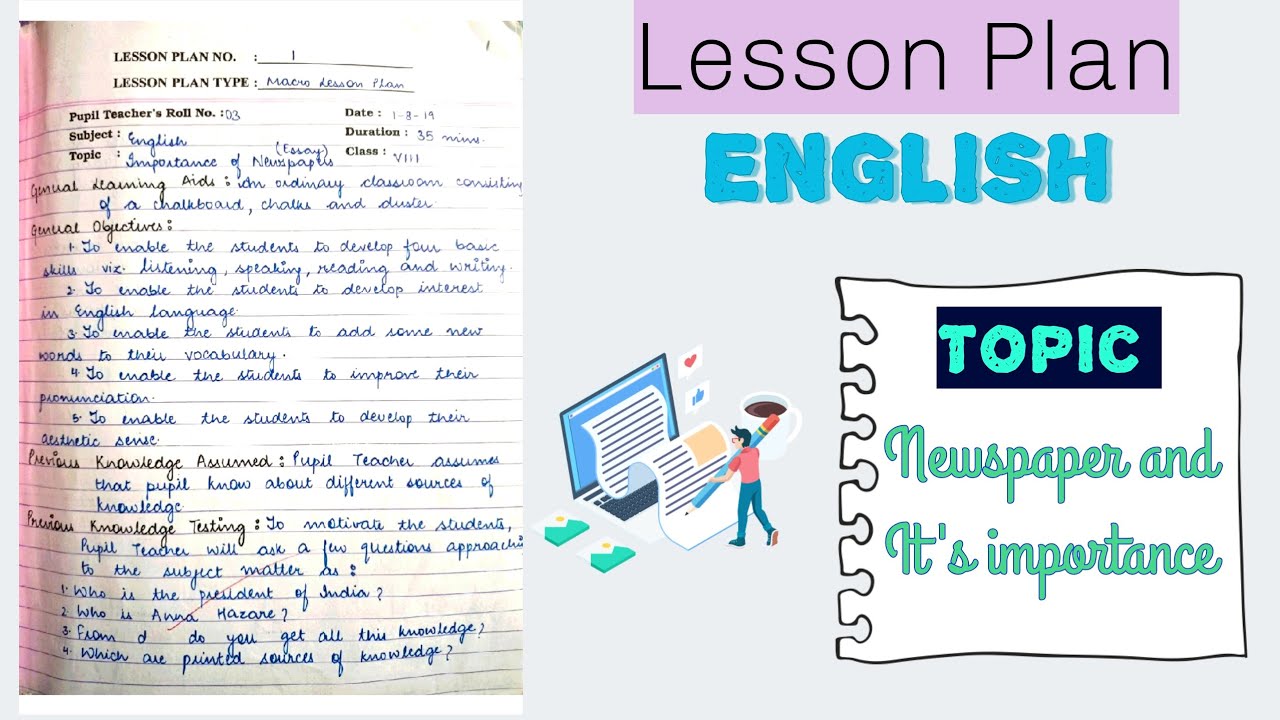 LESSON PLAN NO. : 1
LESSON PLAN TYPE : Macro Lesson Plan
Pupil Teacher's Roll No. : 03 Date : 1-3-19
Subject : English Duration : 35 mins.
Topic : Importance of Newspapers (Essay) Class : VIII
General Learning Aids : An ordinary classroom consisting
of a chalkboard, chalks and duster.
General Objectives :
1. To enable the students to develop four basic
skills viz. listening, speaking, reading and writing.
2. To enable the students to develop interest
in English language.
3. To enable the students to add some new
words to their vocabulary.
4. To enable the students to improve their
pronunciation.
5. To enable the students to develop their
aesthetic sense.
Previous Knowledge Assumed : Pupil Teacher assumes
that pupil know about different sources of
knowledge.
Previous Knowledge Testing : To motivate the students,
Pupil Teacher will ask a few questions approachi
to the subject matter as :
1. Who is the president of India?
2. Who is Anna Hazare?
3. From d do you get all this knowledge?
4. Which are printed sources of knowledge?
Lesson Plan
ENGLISH
TOPIC
Newspaper and
It's importance